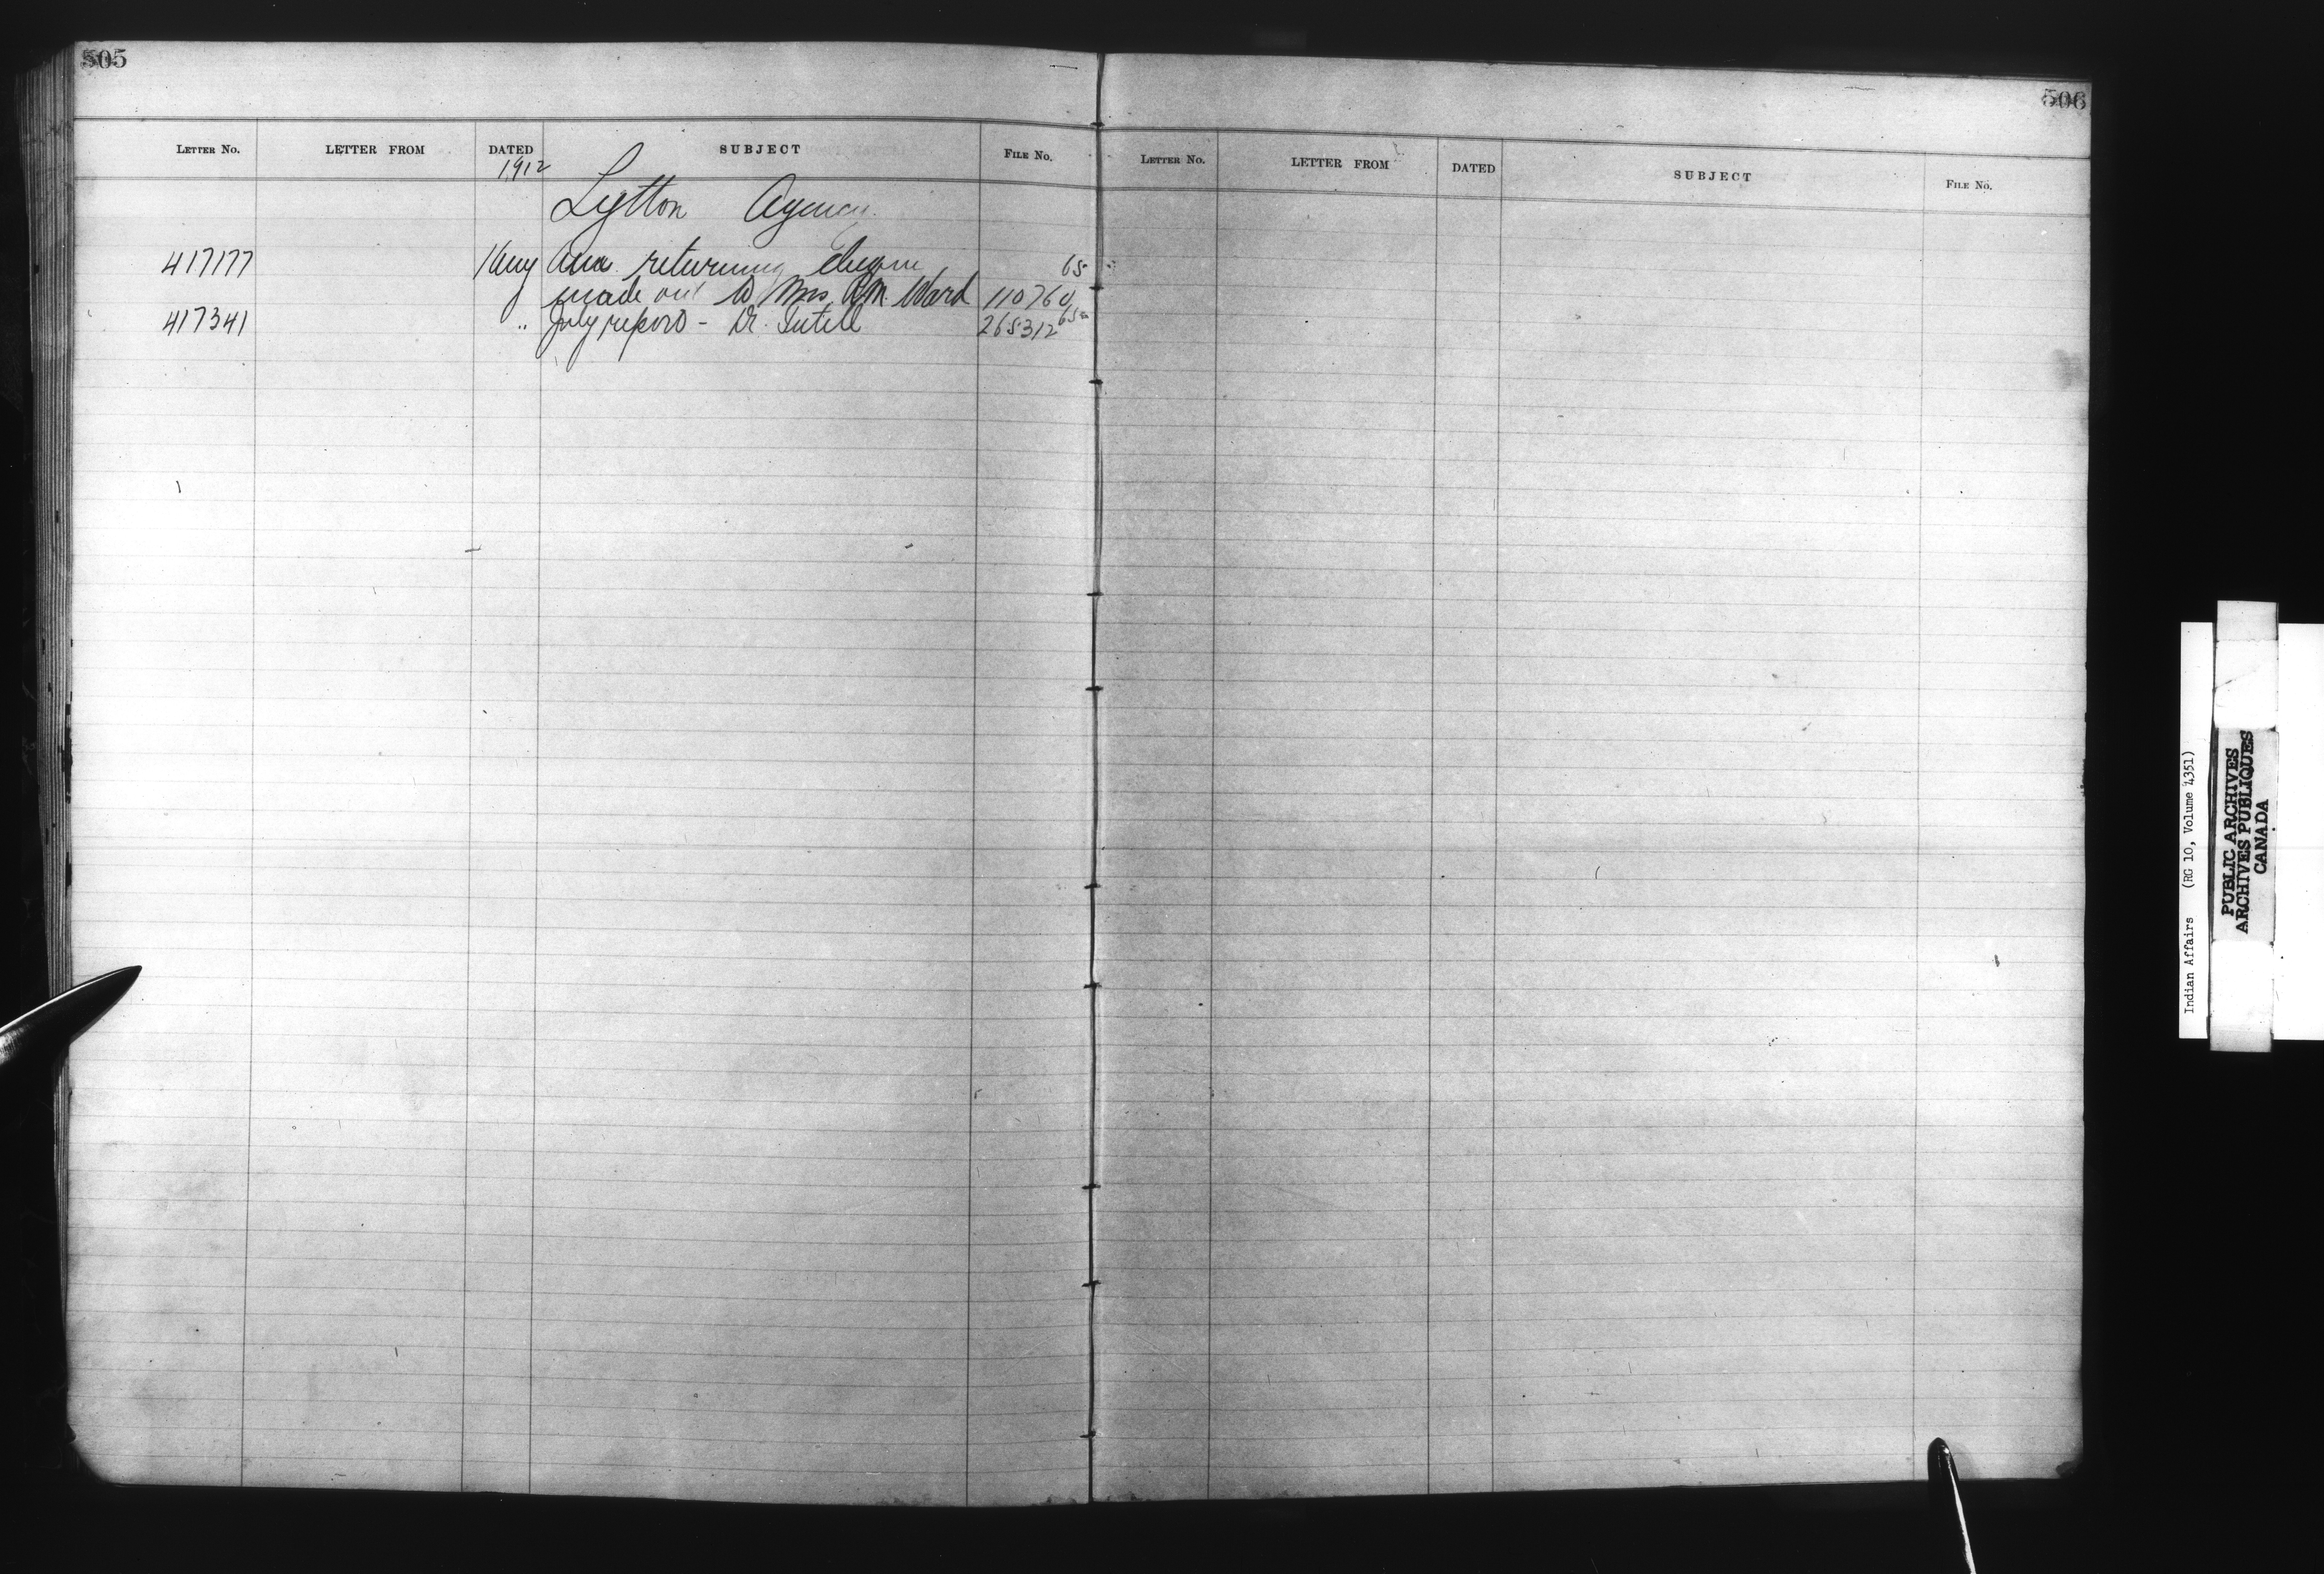 505
LETTER NO. LETTER FROM DATED SUBJECT FILE NO.
1912
Lytton Agency
417177 1 Aug returning cheque 65-
made out to Mrs. Ward 110760
417341 " July report - Dr. Tutill 265312 65-
506
LETTER NO. LETTER FROM DATED SUBJECT FILE NO.
Indian Affairs (RG 10, Volume 4351)
PUBLIC ARCHIVES
ARCHIVES PUBLIQUES
CANADA